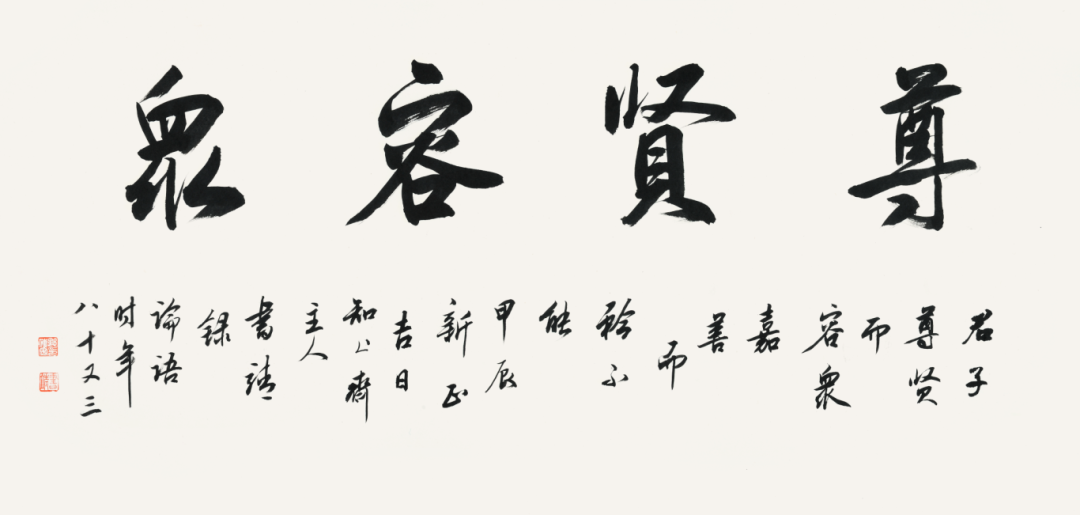 尊賢容衆
君子
尊贤
而
容衆
嘉
善
而
矜不
能
甲辰
新正
吉日
知止齋
主人
書
録
論语
时年
八十又三